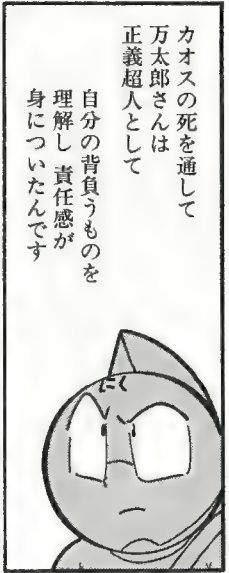 カオスの死を通して
万太郎さんは
正義超人として
自分の背負うものを
理解し 責任感が
身についたんです
にく